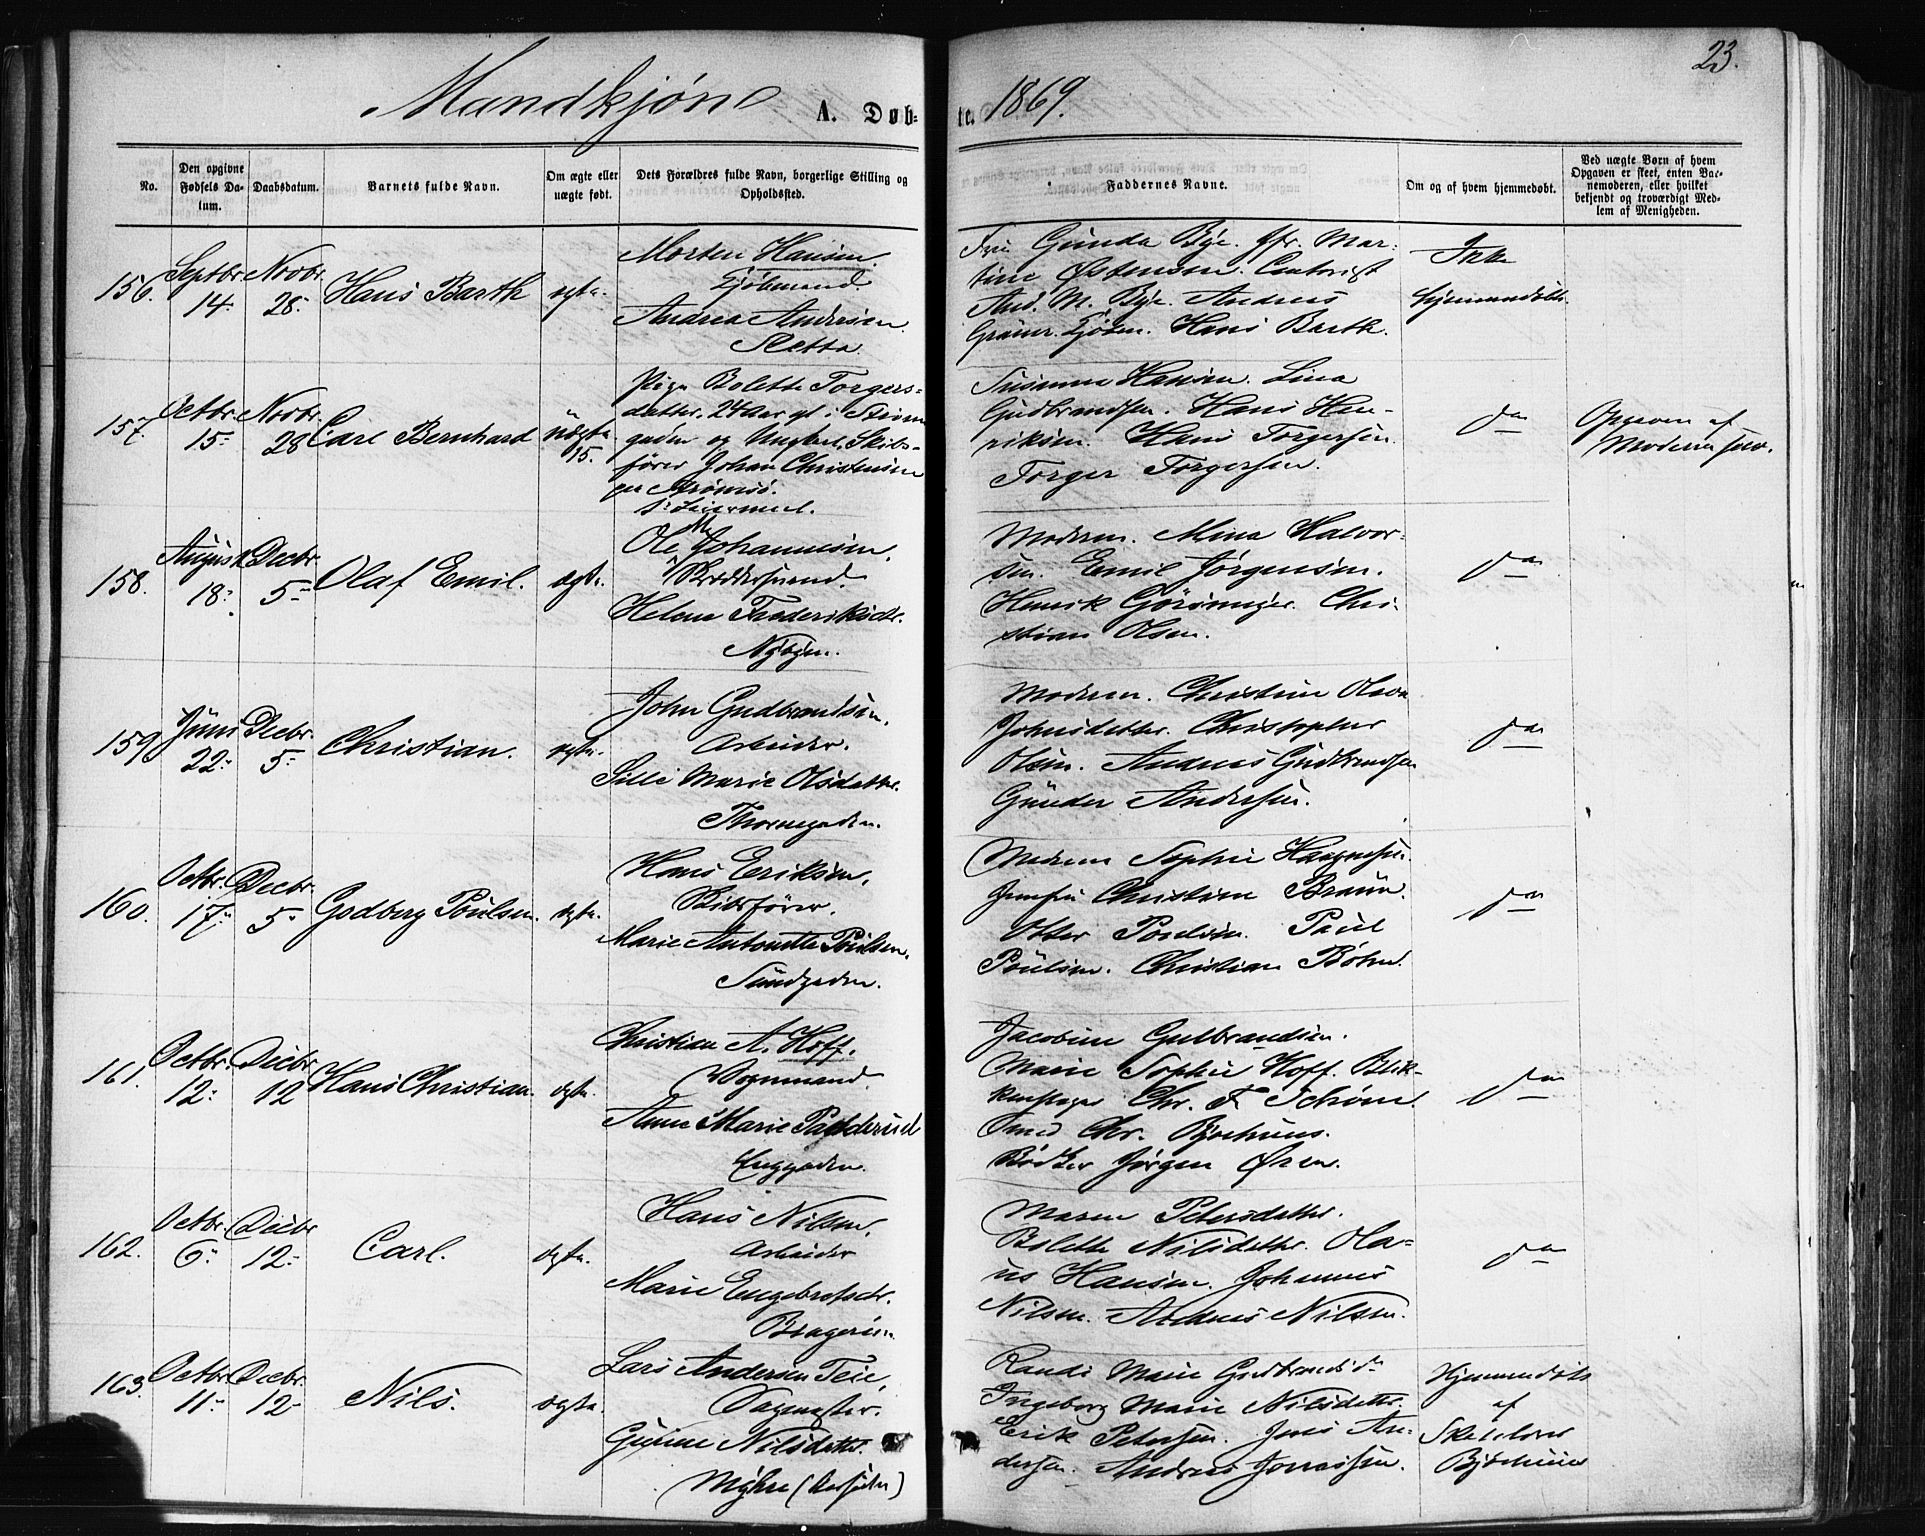 23.
Mandkjøn A. Døb= te. 1869.
No.
Den opgivne Fødsels Da- tum.
Daabsdatum.
Barnets fulde Navn.
Om ægte eller uægte født.
Dets Forældres fulde Navn, borgerlige Stilling og Opholdssted.
Faddernes Navne.
Om og af hvem hjemmedøbt.
Ved uægte Børn af hvem Opgaven er skeet, enten Bar- nemoderen, eller hvilket bekjendt og troværdigt Med- lem af Menigheden.
156. Septbr. 14. Novbr. 28. Hans Barth ægte.
Morten Hansen.
Kjøbmand
Andrea Andersen.
Sletta
Fru Gunda Bye. Jfr. Mar-
tine Østensen.
And. M. Bye. Andreas
Hans Barth.
Ikke
hjemmedøbt.
157. Octbr. 15. Novbr. 28 Carl Bernhard uægte 15.
Pige Bolette Torgers=
datter. 24 Aar gl. i
gaden og Ungkarl, Skibs=
fører Johan Christensen
Strømsø.
Susanne Hansen. Lina
Gudbrandsen. Hans Hen-
riksen. Hans Torgersen.
Torger Torgersen.
do
Opgaven af
Moderen selv.
158. August 18. Decbr. 5 Olaf Emil. ægte.
Ole Johannesen.
Skræddersvend.
Helene Frederiksdtr.
Nybyen.
Moderen. Mina Halvor-
sen. Emil Jørgensen.
Henrik Chri-
stian Olsen.
do
159. Juni 22. Decbr. 5 Christian. ægte.
John Gudbrandsen.
Arbeider.
Silli Marie Olsdatter.
Thornegaden.
Moderen. Christine Olava
Johnsdatter. Christopher
Olsen. Andreas Gudbrandsen
Gunder Andersen.
do
160. Octbr. 17. Decbr. 5 Godberg Poulsen. ægte.
Hans Eriksen.
Skibsfører.
Marie Antonette Poulsen.
Sundgaden.
Moderen Sophie
Jomfru Christiane Braun.
Otter Poulsen. Paul
Poulsen. Christian Bøhm.
do
161. Octbr. 12. Decbr. 12 Hans Christian. ægte.
Christian A. Hoff.
Vognmand.
Anne Marie Padderud
Enggaden.
Jacobine Gulbrandsen.
Marie Sophie Hoff. Blik-
kenslager Chr. F. Schønn.
Smed Chr.
Bødker Jørgen Øren.
do
162. Octbr. 6. Decbr. 12. Carl. ægte.
Hans Nilsen,
Arbeider
Marie Engebretsdtr.
Bragerøen.
Maren Petersdatter.
Bolette Nilsdatter. Ola=
us Hansen. Johannes
Nilsen. Andreas Nilsen.
do
163. Octbr. 11. Decbr. 12. Nils. ægte.
Lars Andersen Teie,
Sagmester.
Gurine Nilsdatter
Myhre
Randi Marie Gudbrandsdr
Ingeborg Marie Nilsdatter.
Erik Petersen. Jens An-
dersen. Andreas Jonassen.
Hjemmedøbt
af
Skolelærer